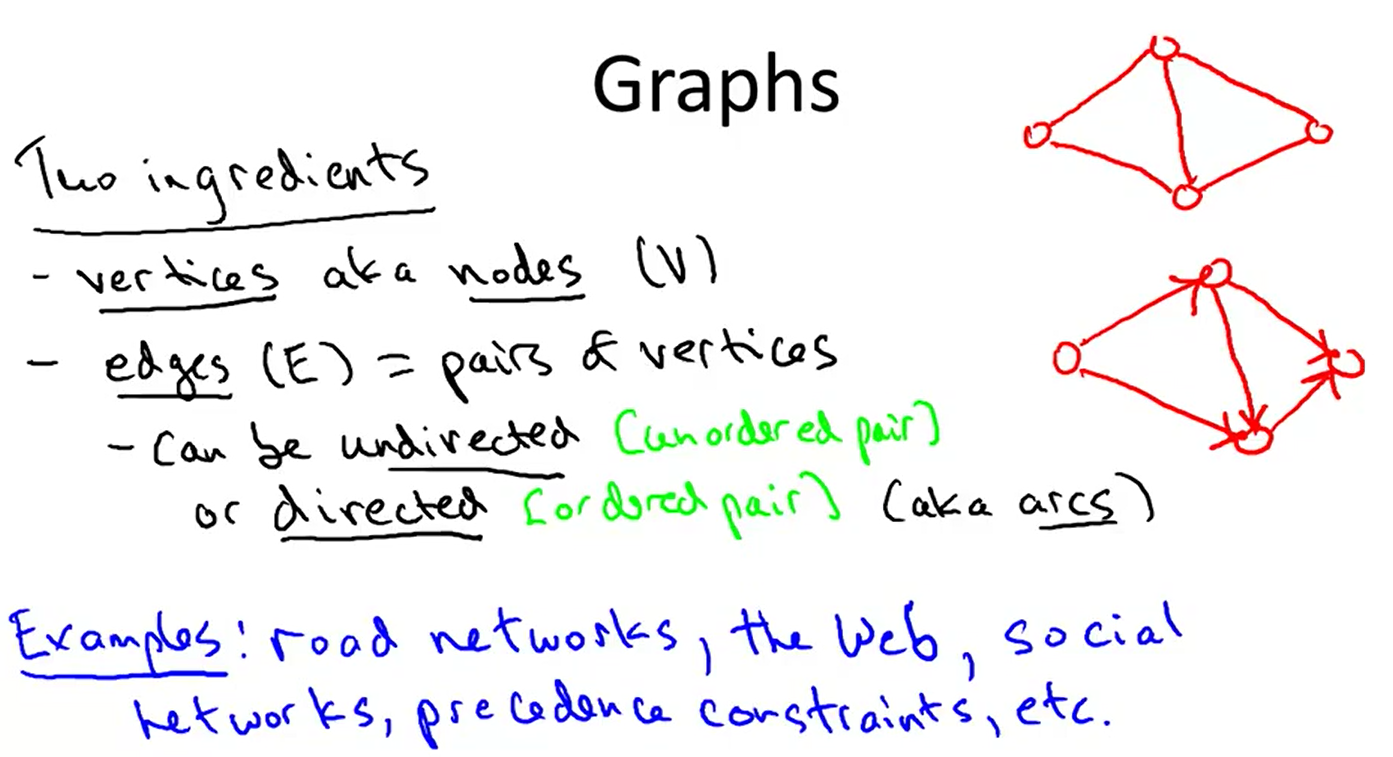 Graphs
Two ingredients
- vertices aka nodes (V)
- edges (E) = pairs of vertices
- can be undirected [unordered pair]
or directed [ordered pair] (aka arcs)
Examples: road networks, the Web, social
networks, precedence constraints, etc.